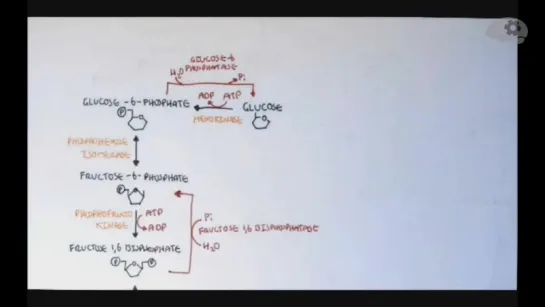 GLUCOSE-6
PHOSPHATASE
H₂O Pi
GLUCOSE-6-PHOSPHATE ADP ATP GLUCOSE
P HEXOKINASE
PHOSPHOHEXOSE
ISOMERASE
FRUCTOSE-6-PHOSPHATE
P
PHOSPHOFRUCTO
KINASE
ATP
ADP
Pi
FRUCTOSE 1,6 BISPHOSPHATASE
H₂O
FRUCTOSE 1,6 BISPHOSPHATE
P P